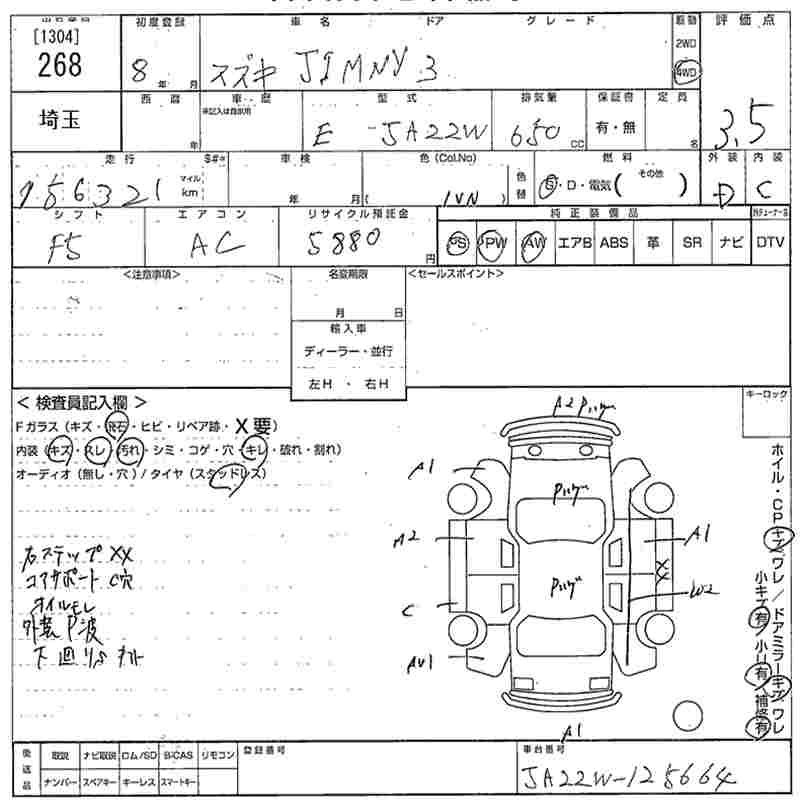 出品番号
[1304]
268
初度登録
8 年 月
車名 ドア グレード
スズキ JIMNY 3
駆動
2WD
4WD
評価点
3.5
埼玉
西暦
年
車歴
※記入は自家用
型式
E -JA22W
排気量
650 CC
保証書
有・無
定員
名
外装 内装
D C
走行 S#*
156321
マイル
km
車検
年 月
色(Col.No)
( )
色替
燃料
G・D・電気( その他 )
シフト
F5
エアコン
AC
リサイクル預託金
5880 円
純正装備品
PS PW AW エアB ABS 革 SR ナビ DTV
<注意事項>
名変期限
月 日
<セールスポイント>
輸入車
ディーラー・並行
左H ・ 右H
<検査員記入欄>
キーロック
Fガラス(キズ・飛石・ヒビ・リペア跡・X要)
内装(キズ・スレ・汚れ・シミ・コゲ・穴・キレ・破れ・割れ)
オーディオ(無し・穴)/タイヤ(スタッドレス)
右ステップ XX
コアサポート C穴
オイルモレ
外装 P波
下廻り
A2
A1
A2
A1
XX
W2
C
A1
ホイル・CPキズワレ/ドアミラーキズワレ
小キズ有/小U有/補修有
後送品
取説 ナビ取説 ロム/SD B-CAS リモコン
ナンバー スペアキー キーレス スマートキー
登録番号
車台番号
JA22W-125664